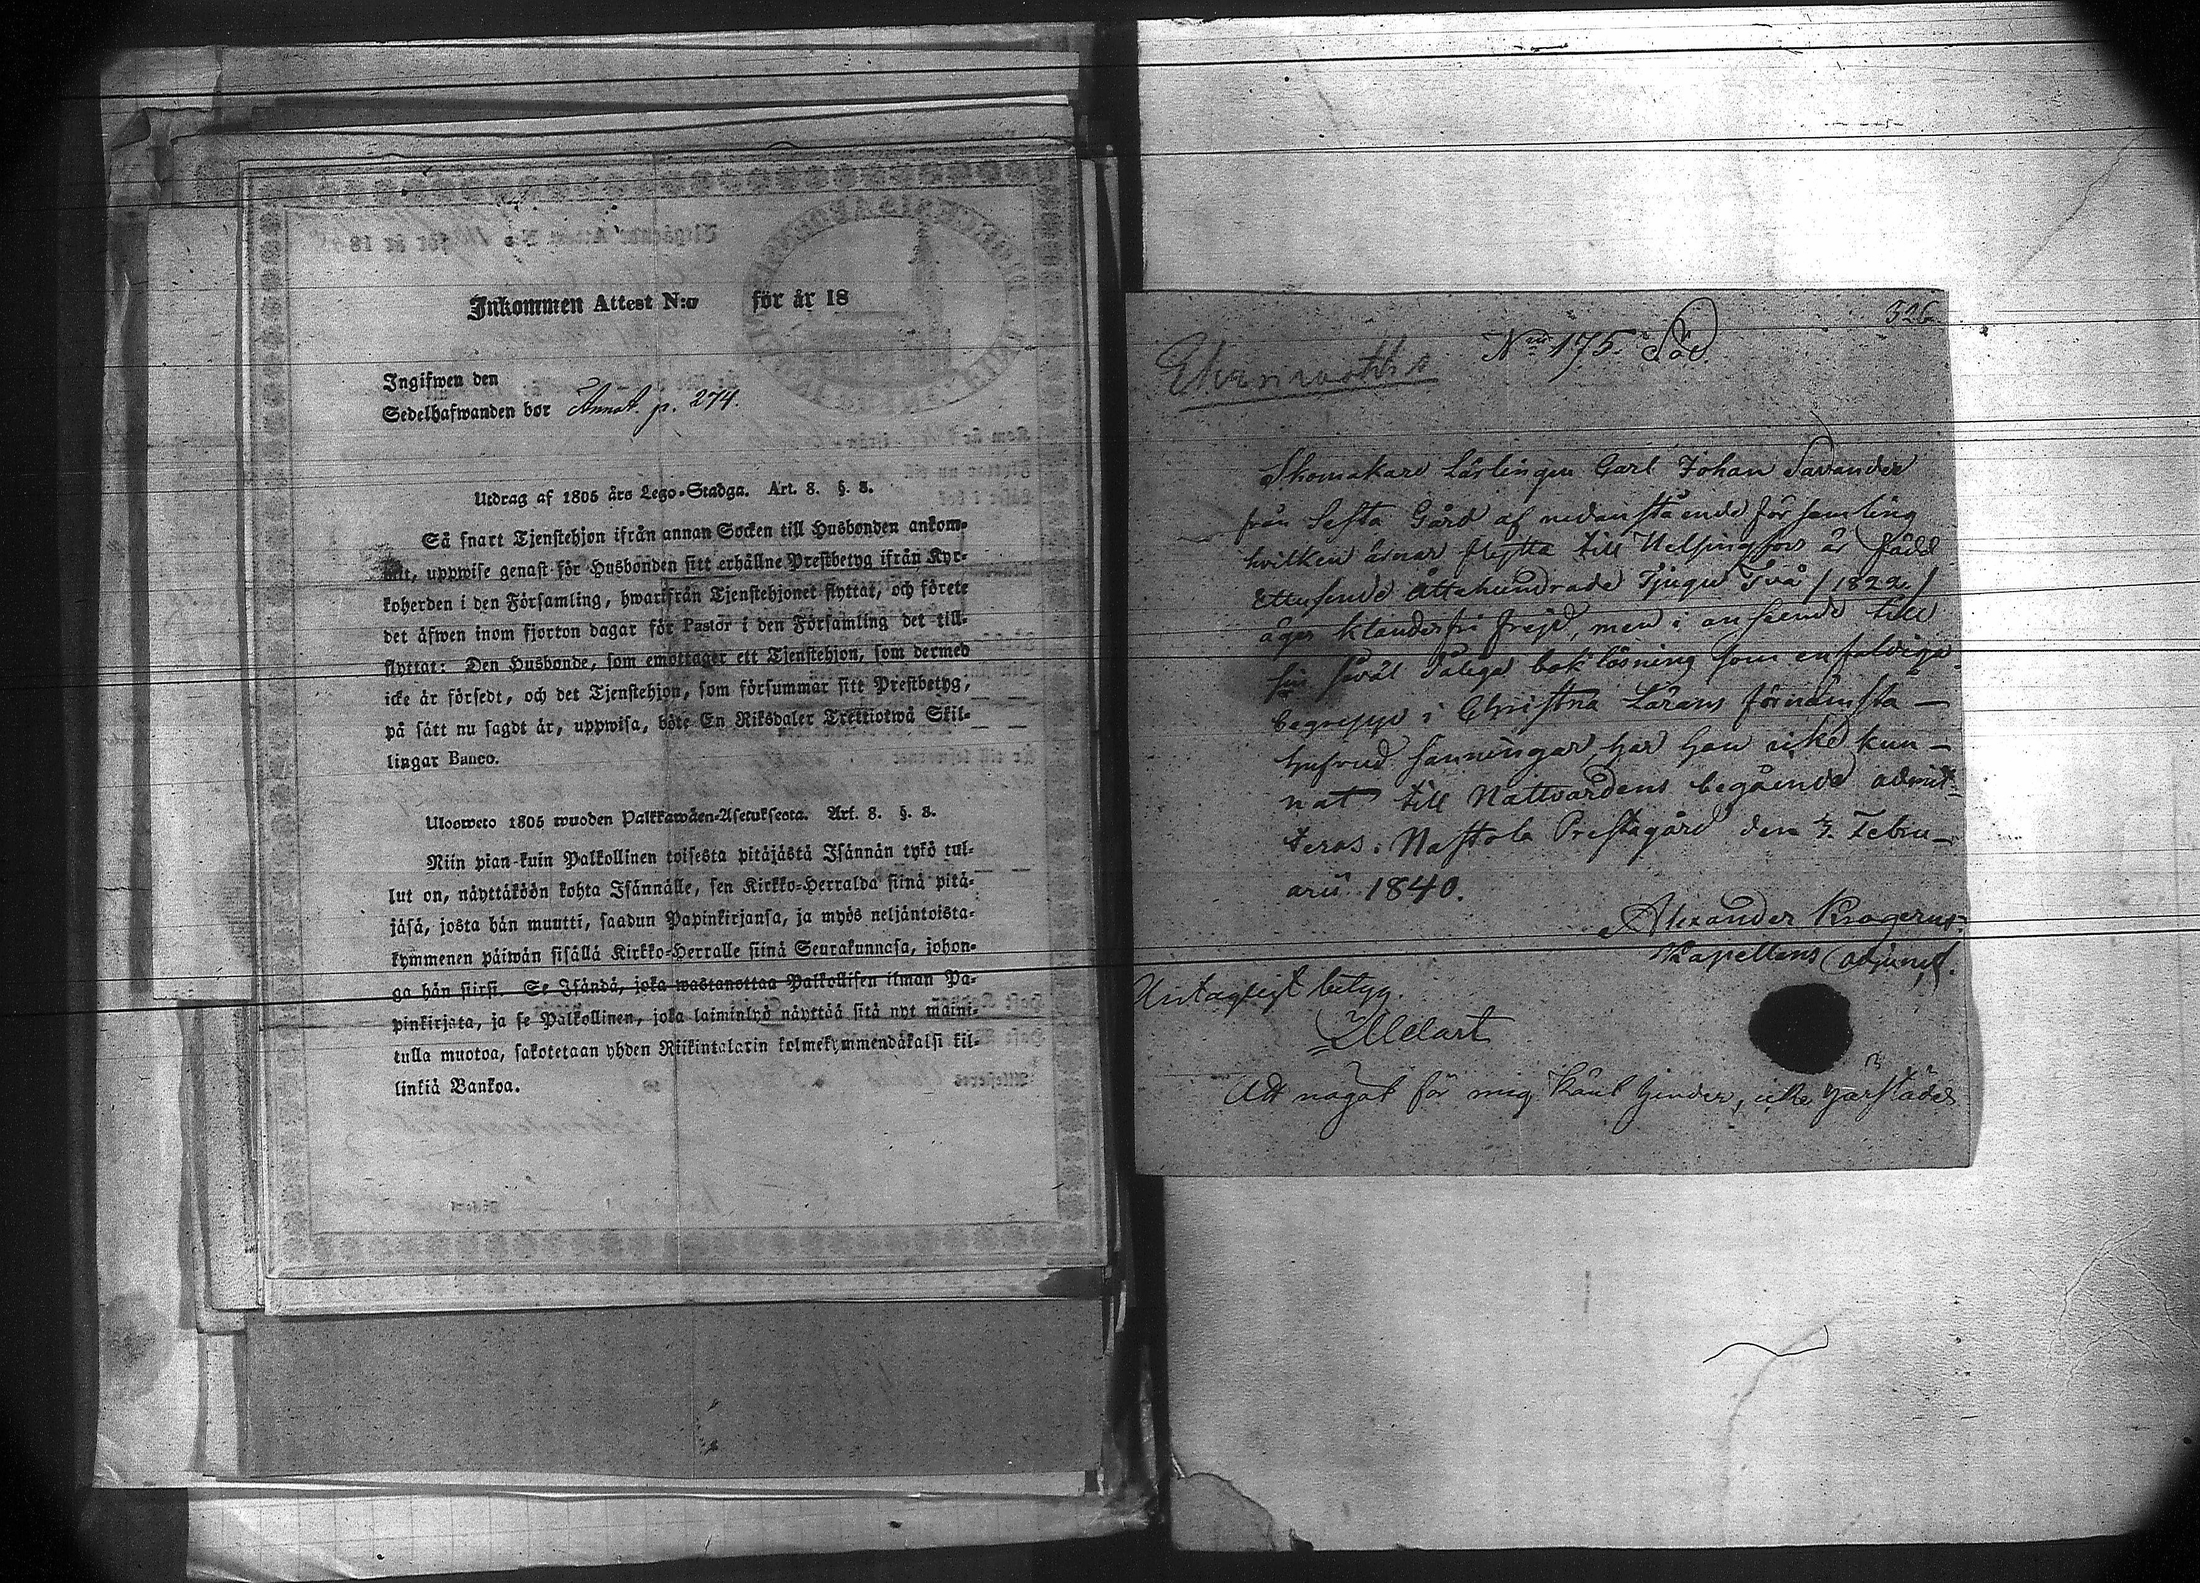 Inkommen Attest N:o för år 18
Ingifwen den
Sedelhafwanden bor Annot. p. 274.
Utdrag af 1805 års Lego-Stadga. Art. 8. §. 3.
Så snart Tjenstehjon ifrån annan Socken till Husbonden ankom-
mit, uppwise genast för Husbonden sitt erhållne Prestbetyg ifrån Kyr-
koherden i den Församling, hwarifrån Tjenstehjonet flyttat, och förete
det äfwen inom fjorton dagar för Pastor i den Församling det till-
flyttat: Den Husbonde, som emottager ett Tjenstehjon, som dermed
icke är försedt, och det Tjenstehjon, som försummar sitt Prestbetyg,
på sätt nu sagdt är, uppwisa, böte En Riksdaler Trettiotwå Skil-
lingar Banco.
Ulosweto 1805 wuoden Palkkawäen-Asetuksesta. Art. 8. §. 3.
Niin pian kuin Palkollinen toisesta pitäjästä Isännän tykö tul-
lut on, näyttäköön kohta Isännälle, sen Kirkko-Herralda siinä pitä-
jäsä, josta hän muutti, saadun Papinkirjansa, ja myös neljäntoista-
kymmenen päiwän sisällä Kirkko-Herralle siinä Seurakunnasa, johon-
ga hän siirsi. Se Isändä, joka wastanottaa Palkollisen ilman Pa-
pinkirjata, ja se Palkollinen, joka laiminlyö näyttää sitä nyt maini-
tulla muotoa, sakotetaan yhden Riikintalarin kolmekymmendäkaksi kil-
linkiä Bankoa.
326
No 175.
Skomakare Lärlingen Carl Johan Savander
från Sesta Gård af nedanstående församling
hvilken ärnar flytta till Helsingfors är född
Ettusende Åttahundrade Tjugu Två /1822/
äger klanderfri frejd, men i anseende till
sin såväl dåliga bokläsning som enfaldiga
begrepp i Christna Lärans förnämsta
hufvud sanningar, har han icke kun-
nat till Nattvardens begående admit-
teras. Nastola Prestagård den 7. Febru-
arii 1840.
Alexander Krogerus
Kapellans adjunct.
Antagligt betyg.
Melart
Att något för mig känt hinder, icke